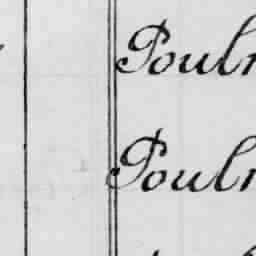 Pouln
Pouln